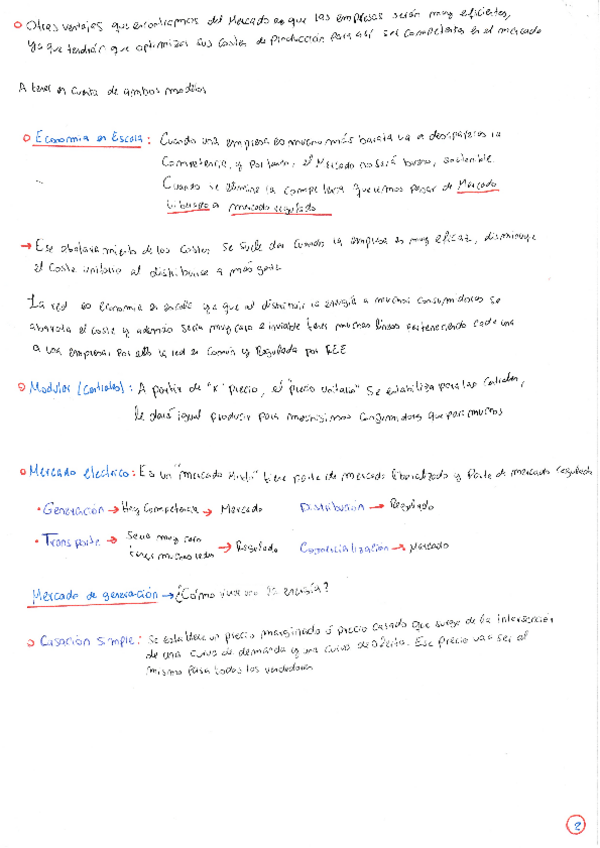 Otras ventajas que encontramos del Mercado es que las empresas serán muy eficientes,
ya que tendrán que optimizar sus costes de producción para así ser competentes en el mercado
A tener en cuenta de ambos modelos
Economía en Escala: Cuando una empresa es mucho más barata va a desaparecer la
Competencia, y por tanto, el Mercado no será bueno, sostenible.
Cuando se elimine la competencia queremos pasar de Mercado
a mercado regulado
→ Ese abaratamiento de los costes se suele dar cuando la empresa es muy eficaz, disminuye
el coste unitario al distribuirse a más gente
La red es economía en escala ya que al distribuir la energía a muchos consumidores se
abarata el coste y además sería muy caro e inviable tener muchas líneas perteneciendo cada una
a una empresa. Por ello la red es común y Regulada por REE
Modular (Centrales): A partir de "x" precio, el "precio unitario" se estabiliza para las Centrales,
le dará igual producir para muchísimos consumidores que para muchos
Mercado eléctrico: Es un "mercado Mixto" tiene parte de mercado liberalizado y Parte de mercado regulado
• Generación → Hay Competencia → Mercado
Distribución → Regulado
• Transporte → Sería muy caro tener muchas redes → Regulado
Comercialización → Mercado
Mercado de generación → ¿Cómo la energía?
Casación Simple: Se establece un precio marginado o precio casado que surge de la intersección
de una curva de demanda y una curva de oferta. Ese precio va a ser el
mismo para todos los vendedores
2